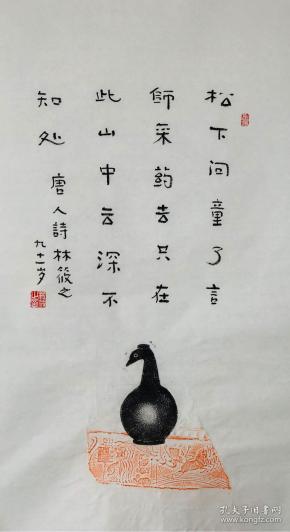 松下问童子言
師采药去只在
此山中云深不
知处
唐人詩林筱之
九十一岁
孔夫子旧书网